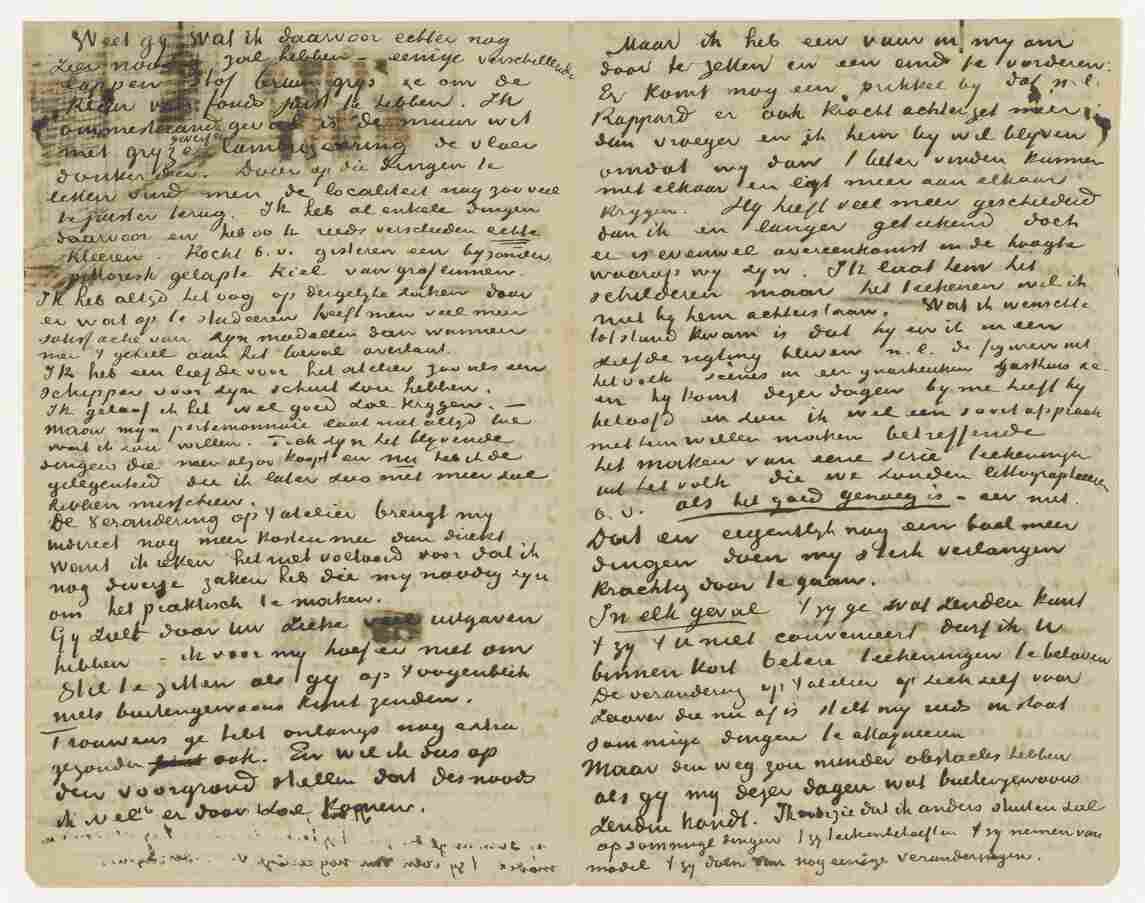 Weet gy wat ik daarvoor echter nog
zeer noodig zou hebben – eenige verschillende
lappen stof bruin grys &c om de
kleur van fonds juist te hebben. Ik
ommestaand geval is de muur wit
met gryze geverfde lambrizeering de vloer
donkerder. Door op die dingen te
letten vind men de localiteit nog zoo veel
te juister terug. Ik heb al enkele dingen
daarvoor en heb ook reeds verscheiden echte
kleeren. Kocht b.v. gisteren een byzonder
pittoresk gelapte kiel van grof linnen.
Ik heb altyd het oog op dergelyke zaken door
er wat op te studeeren heeft men veel meer
satisfactie van zyn modellen dan wanneer
men 't geheel aan het toeval overlaat.
Ik heb een liefde voor het atelier zooals een
schipper voor zyn schuit zou hebben.
Ik geloof ik het wel goed zal krygen. –
maar myn portemonnaie laat niet altyd toe
wat ik zou willen. Toch zyn het blyvende
dingen die men alzoo koopt en nu heb ik de
gelegenheid die ik later zoo niet meer zal
hebben misschien.
De verandering op 't atelier brengt my
indirect nog meer kosten mee dan direkt
want ik reken het niet voltooid voor dat ik
nog diverse zaken heb die my noodig zyn
om het praktisch te maken.
Gy zult door uw zieke veel uitgaven
hebben – ik voor my hoef er niet om
stil te zitten als gy op 't oogenblik
niets buitengewoons kunt zenden.
Trouwens ge hebt onlangs nog extra
gezonden ook. En wil ik dus op
den voorgrond stellen dat desnoods
ik wel er door zal komen.
Maar ik heb een vuur in my om
door te zetten en een eind te vorderen.
Er komt nog een prikkel by dat n.l.
Rappard er ook kracht achterzet meer
dan vroeger en ik hem by wil blyven
omdat wy dan 't beter vinden kunnen
met elkaar en ligt meer aan elkaar
krygen. Hy heeft veel meer geschilderd
dan ik en langer geteekend doch
er is evenwel overeenkomst in de hoogte
waarop wy zyn. Ik laat hem het
schilderen maar het teekenen wil ik
niet by hem achterstaan. Wat ik wenschte
tot stand kwam is dat hy en ik in een
zelfde rigting bleven n.l. de figuren uit
het volk scènes in een gaarkeuken Gasthuis &c
en hy komt dezer dagen by me heeft hy
beloofd en zou ik wel een soort afspraak
met hem willen maken betreffende
het maken van eene serie teekeningen
uit het volk die we zouden lithographieeren
b.v. als het goed genoeg is – eer niet.
Dat en eigentlyk nog een boel meer
dingen doen my sterk verlangen
krachtig door te gaan.
In elk geval 't zy ge wat zenden kunt
't zy 't u niet convenieert durf ik U
binnen kort betere teekeningen te beloven
De verandering op 't atelier op zich zelf voor
zoover die nu af is stelt my reeds in staat
sommige dingen te attaqueeren
Maar den weg zou minder obstacles hebben
als gy my dezer dagen wat buitengewoons
zenden kondt. Ik voorzie dat ik anders stuiten zal
op sommige dingen 't zy teekenbehoeften 't zy nemen van
model 't zy doen van nog eenige veranderingen.